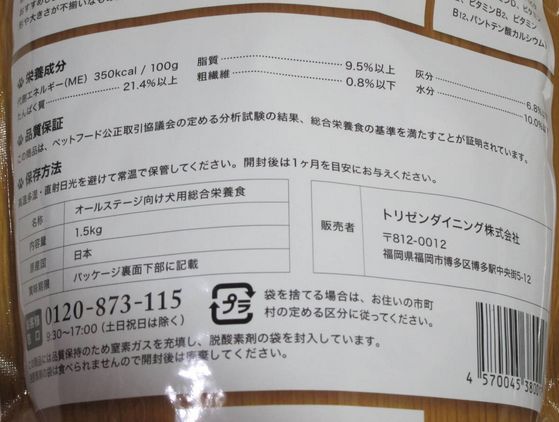 おすすめし
形や大きさが不揃いなも
ビタミンD、ビタ
、ビタミンB2、ビタミン
B12、パントテン酸カルシウム
栄養成分
代謝エネルギー(ME) 350kcal / 100g
たんぱく質 21.4%以上
脂質 9.5%以上
粗繊維 0.8%以下
灰分 6.8%
水分 10.0%
品質保証
この商品は、ペットフード公正取引協議会の定める分析試験の結果、総合栄養食の基準を満たすことが証明されています。
保存方法
高温多湿・直射日光を避けて常温で保管してください。開封後は1ヶ月を目安にお与えください。
名称 オールステージ向け犬用総合栄養食
内容量 1.5kg
原産国 日本
賞味期限 パッケージ裏面下部に記載
販売者
トリゼンダイニング株式会社
〒812-0012
福岡県福岡市博多区博多駅中央街5-12
0120-873-115
9:30〜17:00（土日祝日は除く）
プラ
袋を捨てる場合は、お住いの市町
村の定める区分に従ってください。
この商品には品質保持のため窒素ガスを充填し、脱酸素剤の袋を封入しています。
脱酸素剤の袋は食べられませんので開封後は廃棄してください。
4 570045 3800